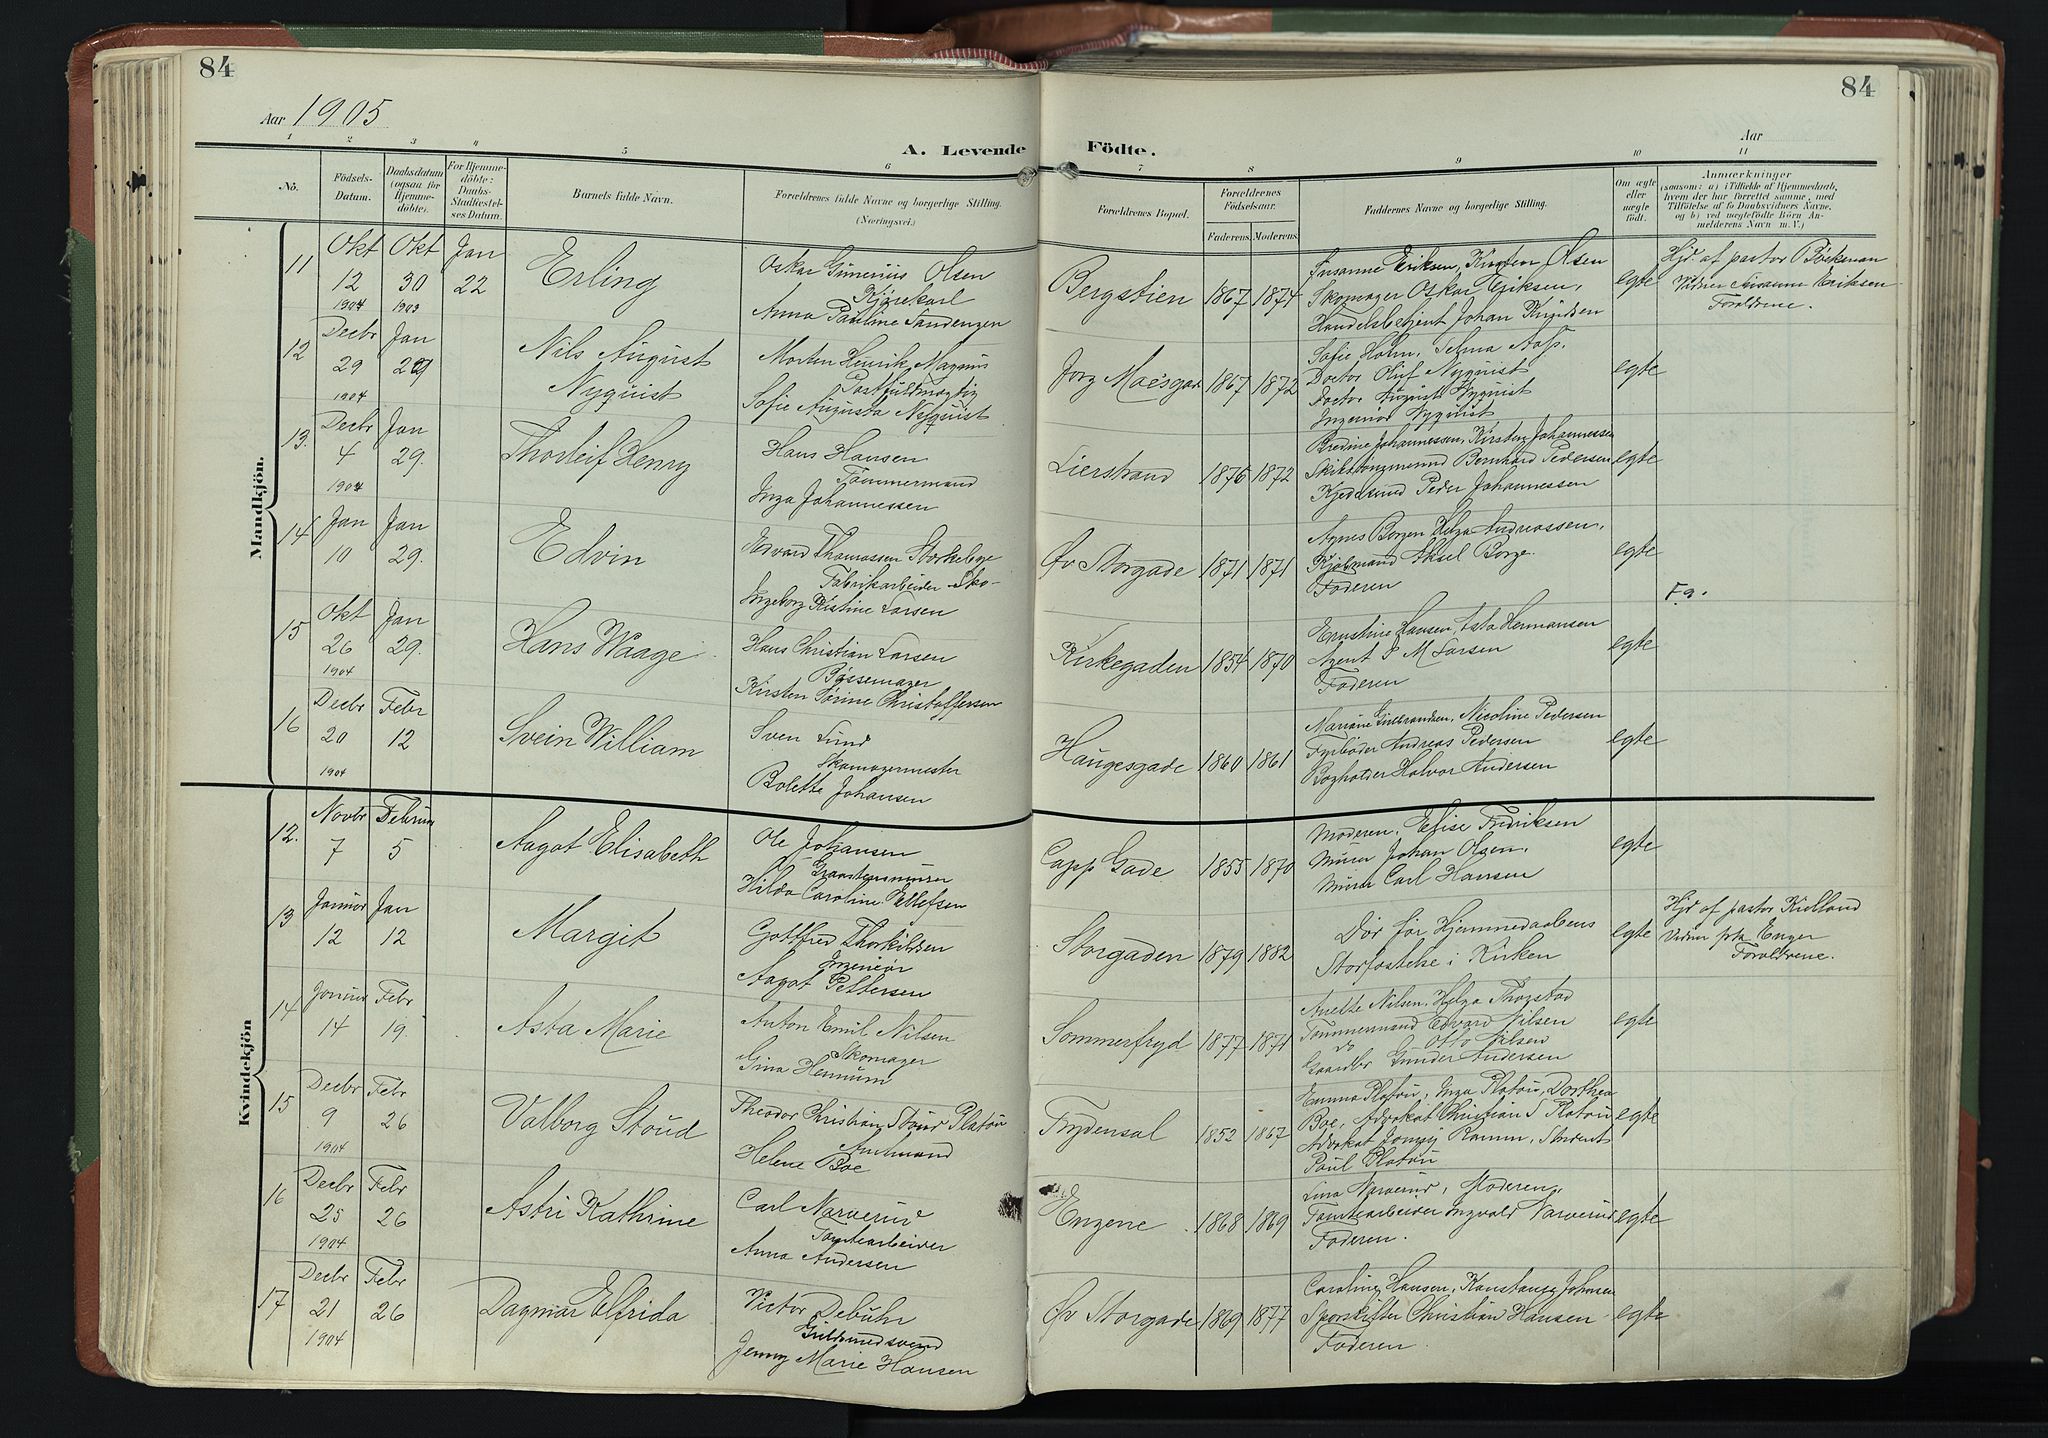 84
84
Aar 1905
Aar
A. Levende Födte.
1 2 3 4 5 6 7 8 9 10 11
No.
Födsels-Datum.
Daabsdatum (ogsaa for Hjemmedöbte).
For Hjemmedöbte: Daabs-Stadfæstelses Datum.
Barnets fulde Navn.
Forældrenes fulde Navne og borgerlige Stilling. (Næringsvei.)
Forældrenes Bopæl.
Forældrenes Födselsaar.
Faderens. Moderens.
Faddernes Navne og borgerlige Stilling.
Om ægte eller uægte födt.
Anmærkninger
(saasom: a) i Tilfælde af Hjemmedaab, hvem der har forrettet samme, med Tilföielse af to Daabsvidners Navne, og b) ved uægtefödte Börn Anmelderens Navn m. V.)
Mandkjön.
11 Okt 12 1904 Okt 30 1903 Jan 22 Erling
Oskar Olsen
Kjörekarl
Anna Pauline
Bergstien 1867 1874
Susanne Eriksen, Kirsten Olsen
Skomager Oskar Eriksen,
Handelsbetjent Johan Knudsen
egte
Hjd. af pastor Böckman
Vidner Susanne Eriksen
Foraldrene.
12 Decbr 29 1904 Jan 29 Nils August
Nyquist
Morten Henrik Magnus
Postfuldmægtig
Sofie Augusta Nyquist
1867 1872
Sofie Holm, Selma Aas.
Doctor Oluf Nyquist
Doctor August Nyquist
Ingeniör Nyquist
egte
13. Decbr 4 1904 Jan 29. Thorleif Henry
Hans Hansen
Tömmermand
Inga Johannessen
Lierstrand 1876 1872
Johannessen, Kirsten Johannessen
Bernhard Pedersen
Peder Johannessen
egte
14 Jan 10 Jan 29. Edvin
Edvard Thomassen
Fabrikarbeider Sko-
Ingeborg Kristine Larsen
Öv Storgade 1871 1871
Agnes Borgen, Helga Andreassen,
Kjöbmand Aksel Borge.
Faderen
egte
F.a.
15 Okt 26 1904 Jan 29. Hans Waage
Hans Christian Larsen
Bössemager
Kirsten Sörine Christoffersen
Kirkegaden 1854 1870
Ernstine Hansen, Asta Hermansen
Agent P M Larsen
Faderen
egte
16 Decbr 20 1904 Febr 12 Svein William
Sven Lund
Skomagermester
Bolette Johansen
Haugesgade 1860 1861
Mariane Gulbrandsen, Nicoline Pedersen
Fyrböder Andreas Pedersen
Bogholder Halvor Andersen
egte
Kvindekjön
12. Novbr 7 Februar 5 Aagot Elisabeth
Ole Johansen
Graastensmurer
Hilda Caroline Ellefsen
Capp Gade 1855 1870
Moderen, Elise Fredriksen
Murer Johan Olsen,
Murer Carl Hansen
egte
13 Januar 12 Jan 12 Margit
Gottfred Thorkildsen
Ingeniör
Aagot Pettersen
Storgaden 1879 1882
Död för Hjemmedaabens
Stadfæstelse i Kirken
egte
Hjd. af pastor Kielland
Vidner frk. Enger
Foraldrene.
14 Januar 14 Febr 19 Asta Marie
Anton Emil Nilsen
Skomager
Gina Hennum
Sommerfryd 1877 1871
Anette Nilsen, Helga Thorstad
Tömmermand Edvard Nilsen
do Otto Nilsen
Gaardbr Gunder Andersen
egte
15 Decbr 9 1904 Febr 26 Valborg Stoud
Theodor Christian Stoud Platou
Amtmand
Helene Boe
Frydensal 1852 1867
Emma Platou, Inga Platou, Dorthea
Boe, Advokat Christian S Platou
Advokat Ramm, Student
Paul Platou
egte
16 Decbr 25 1904 Febr 26 Astri Kathrine
Carl Narverud
Tomtearbeider
Anna Andersen
Engene 1868 1869
Lina Narverud, Moderen,
Tomtearbeider Ingvald Narverud
Faderen.
egte
17 Decbr 21 1904 Febr 26 Dagmar Elfrida
Victor Debuhr
Guldsmedsvend
Jenny Marie Hansen
Öv Storgade 1869 1877
Caroline Hansen, Konstanse Johnsen
Sporskifter Christian Hansen
Faderen.
egte